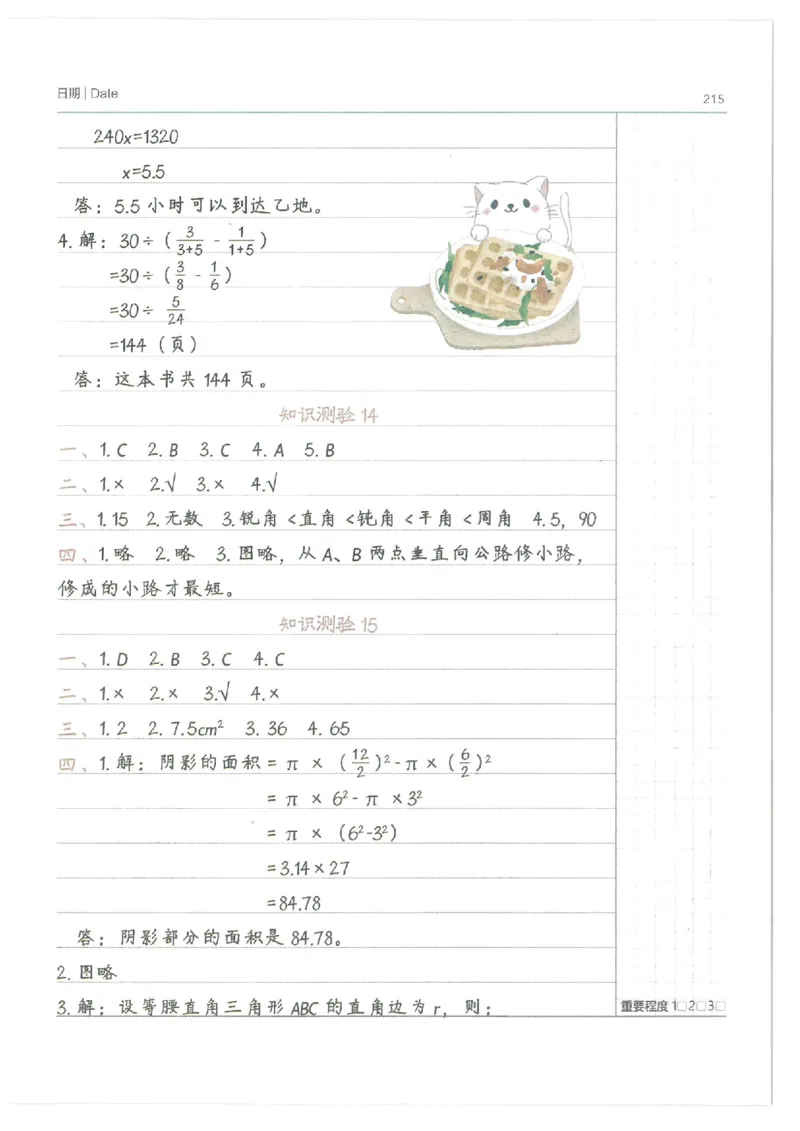 日期 | Date
215
240x=1320
x=5.5
答：5.5 小时可以到达乙地。
4. 解：30÷（3/(3+5) - 1/(1+5)）
=30÷（3/8 - 1/6）
=30÷ 5/24
=144（页）
答：这本书共 144 页。
知识测验 14
一、1. C 2. B 3. C 4. A 5. B
二、1.× 2.√ 3.× 4.√
三、1.15 2.无数 3.锐角<直角<钝角<平角<周角 4.5，90
四、1.略 2.略 3.图略，从 A、B 两点垂直向公路修小路，
修成的小路才最短。
知识测验 15
一、1. D 2. B 3. C 4. C
二、1.× 2.× 3.√ 4.×
三、1. 2 2. 7.5cm² 3. 36 4. 65
四、1.解：阴影的面积= π ×（12/2）²-π×（6/2）²
= π × 6²- π ×3²
= π ×（6²-3²）
=3.14×27
=84.78
答：阴影部分的面积是 84.78。
2. 图略
3.解：设等腰直角三角形 ABC 的直角边为 r，则：
重要程度 1□2□3□